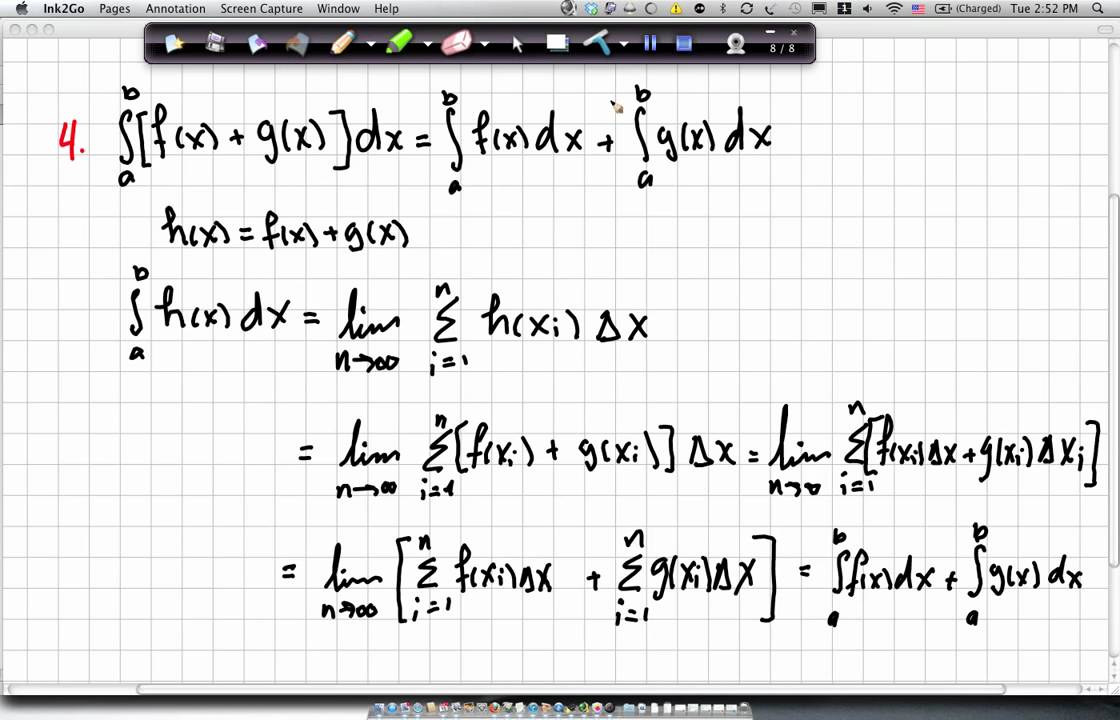 Ink2Go Pages Annotation Screen Capture Window Help (Charged) Tue 2:52 PM
8 / 8
4. ∫ₐᵇ [f(x) + g(x)] dx = ∫ₐᵇ f(x) dx + ∫ₐᵇ g(x) dx
h(x) = f(x) + g(x)
∫ₐᵇ h(x) dx = lim n→∞ Σ i=1 n h(xᵢ) Δx
= lim n→∞ Σ i=1 n [f(xᵢ) + g(xᵢ)] Δx = lim n→∞ Σ i=1 n [f(xᵢ)Δx + g(xᵢ)Δxᵢ]
= lim n→∞ [Σ i=1 n f(xᵢ)Δx + Σ i=1 n g(xᵢ)Δx] = ∫ₐᵇ f(x) dx + ∫ₐᵇ g(x) dx